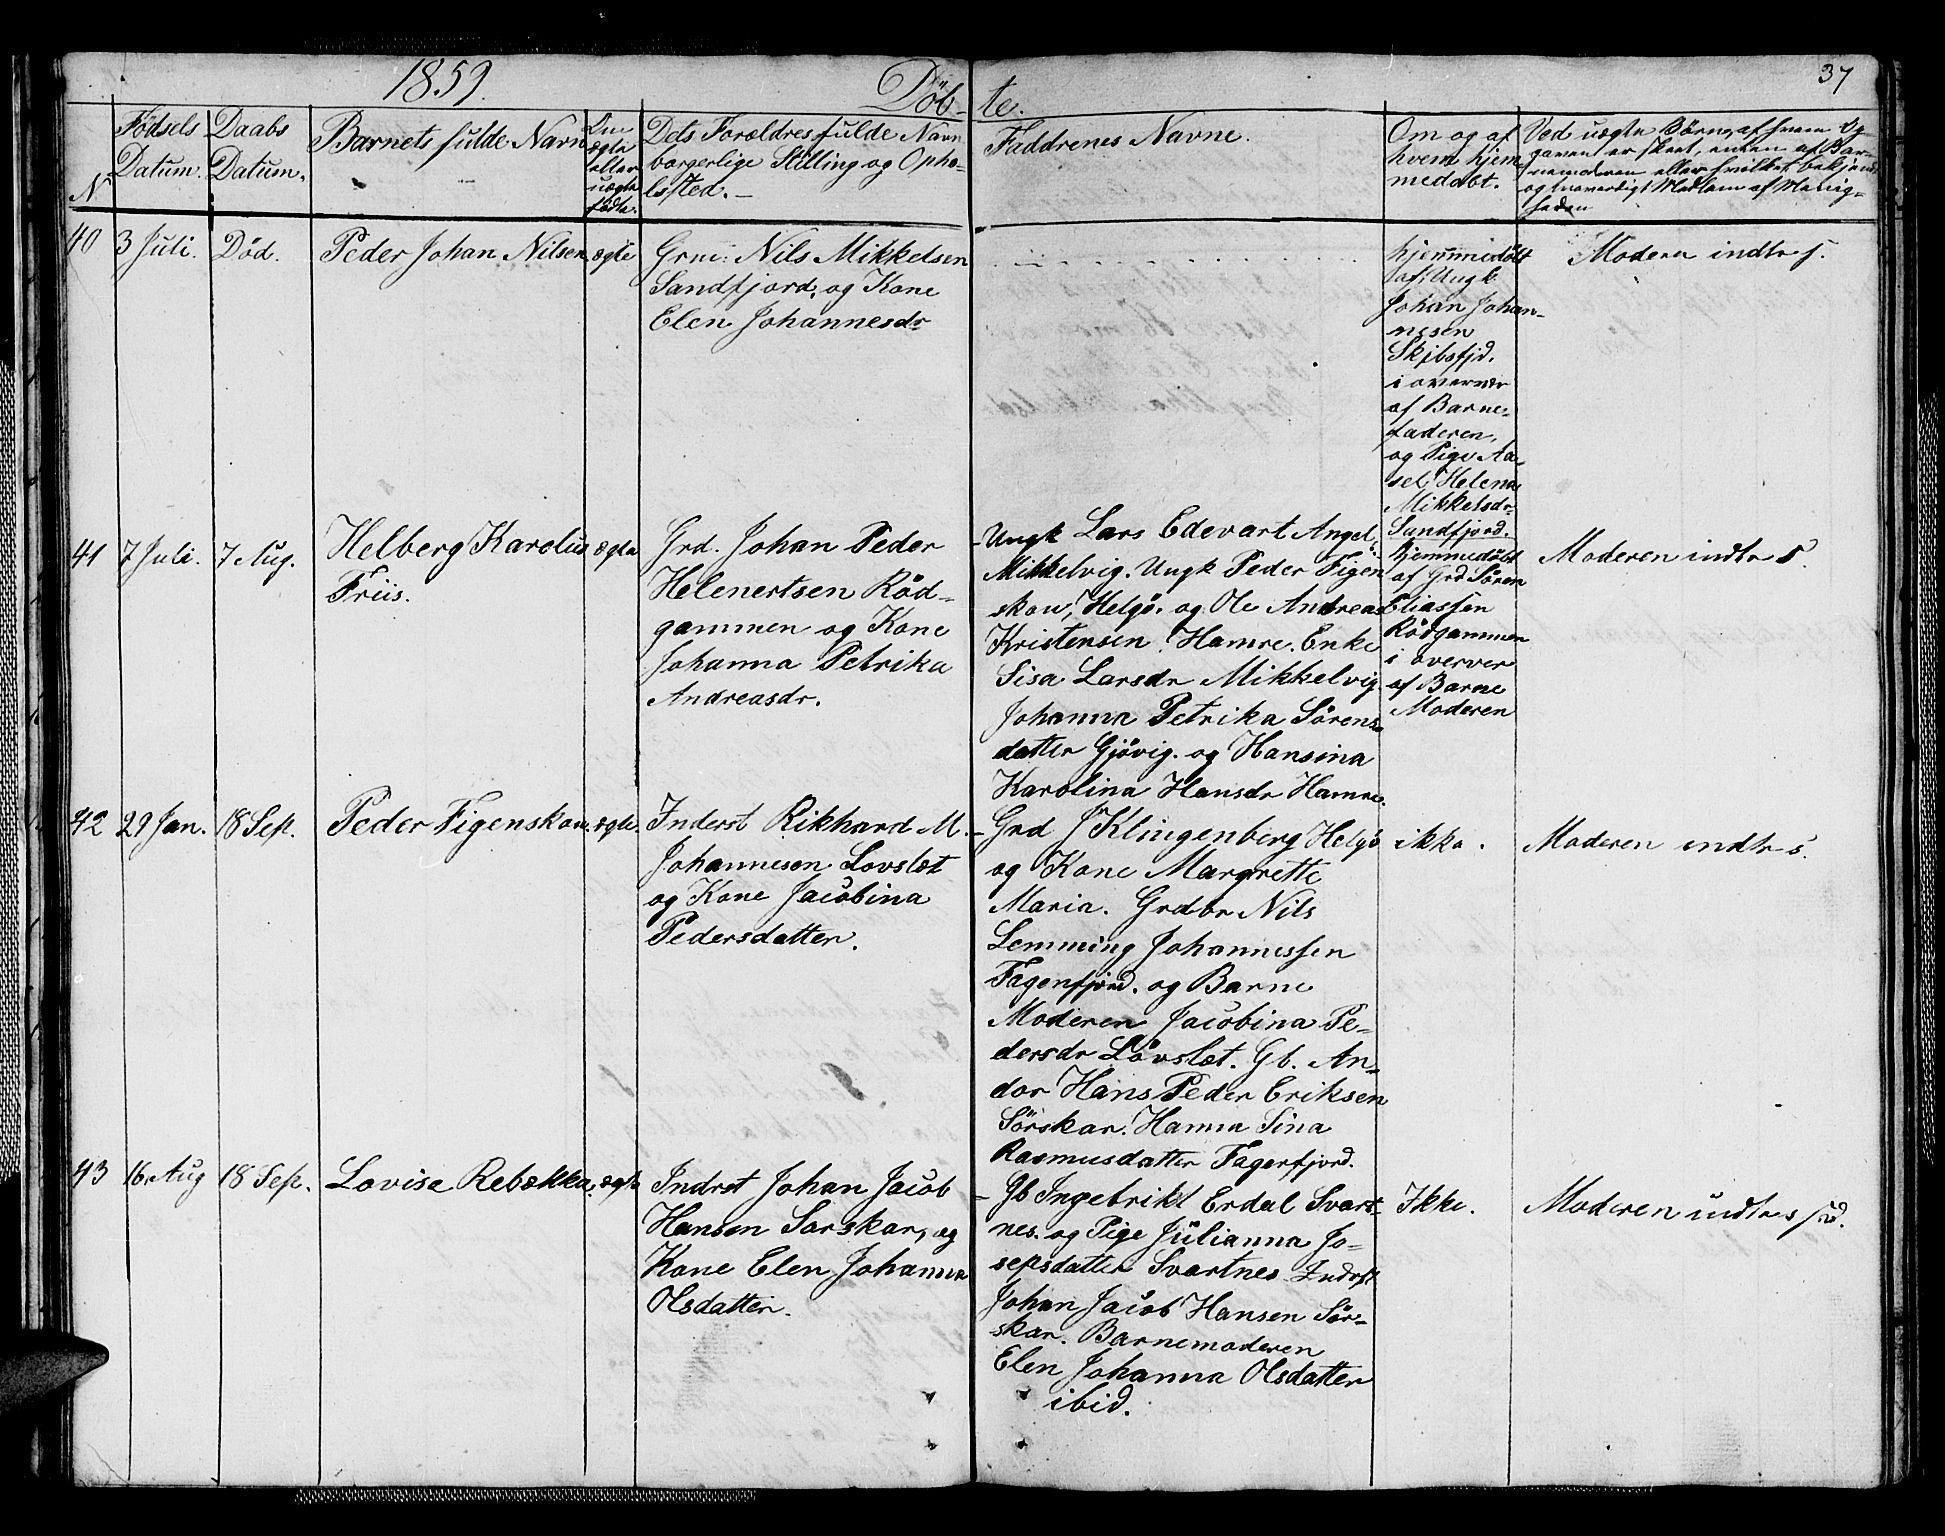 1859.
Döb-
te.
37
N
Fødsels
Datum.
Daabs
Datum.
Barnets fulde Navn
Om
ægte
eller
uægte
fødte.
Dets Forældres fulde Navn
borgerlige Stilling og Opho-
lssted.
Faddrenes Navne.
Om og af
hvem hjem-
medøbt.
Ved uægte Börn, af hvem Op
gaven er skeet, enten af Bar-
nemoderen eller hvilket bekjend
og troværdigt Medlem af Menig-
heden
40
3 Juli.
Död.
Peder Johan Nilsen
ægte
Grm: Nils Mikkelsen
Sandfjord, og Kone
Elen Johannesdr
hjemmedöbt
af Ungk
Johan Johan-
nesen
Skibsfjd.
i overvær
af Barne-
faderen,
og Pige Aa-
sel Helena
Mikkelsdr
Sandfjord.
Moderen indtr s.
41
7 Juli.
7 Aug.
Helberg Karolius
Friis.
ægte
Grd. Johan Peder
Helenertsen Röd-
gammen og Kone
Johanna Petrika
Andreasdr.
Ungk Lars Edevart Angel,
Mikkelvig. Ungk Peder Figen
skou, Helgö. og Ole Andreas
Kristensen Hamre. Enke
Sisa Larsdr Mikkelvig.
Johanna Petrika Sörens-
datter Gjövig. og Hansina
Karolina Hansdr Hamre.
hjemmedöbt
af Grd Sören
Eliassen
Rödgammen
i overver
af Barne
Moderen
Moderen indtr s.
42
29 Jan.
18 Sep.
Peder Figenskou.
ægte.
Inderst Rikhard M.
Johannesen Lovslet
og Kone Jacobina
Pedersdatter.
Grd J Klingenberg Helgö
og Kone Margrette
Maria. Grdbr Nils
Lemming Johannessen
Fagerfjord. og Barne
Moderen Jacobina Pe-
dersdr Lövslet. Gb. An-
dor Hans Peder Eriksen
Sörskar. Hanna Sina
Rasmusdatter Fagerfjord.
ikke.
Moderen indtr s.
43
16. Aug
18 Sep.
Lovise Rebækka.
ægte
Indrst Johan Jacob
Hansen Sarskar, og
Kone Elen Johanna
Olsdatter.
Gb Ingebrikt Erdal Svart-
nes. og Pige Julianna Jo-
sepsdatter Svartnes Indrst
Johan Jacob Hansen Sör-
skar. Barnemoderen
Elen Johanna Olsdatter
ibid.
Ikke.
Moderen indtres sd.